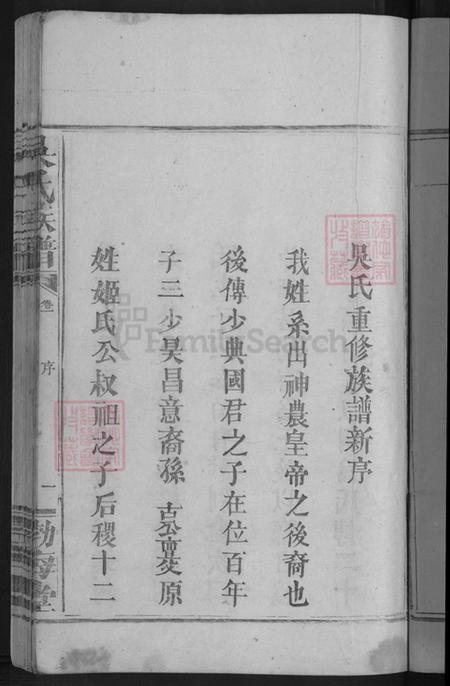 吳氏重修族譜新序
我姓系出神農皇帝之後裔也
後傳少典國君之子在位百年
子三少昊昌意裔孫古公亶父原
姓姬氏公叔祖之子后稷十二
吳氏族譜
卷
序
一
渤海堂
FamilySearch